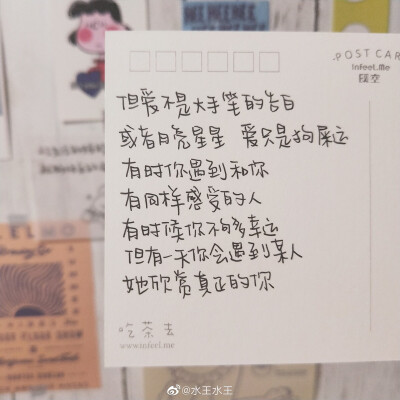 POST CARD
Infeel.Me
但爱不是大手笔的告白
或者月亮星星 爱只是狗屎运
有时你遇到和你
有同样感受的人
有时候你不够多幸运
但有一天你会遇到某人
她欣赏真正的你
吃茶去
www.infeel.me
@水王水王